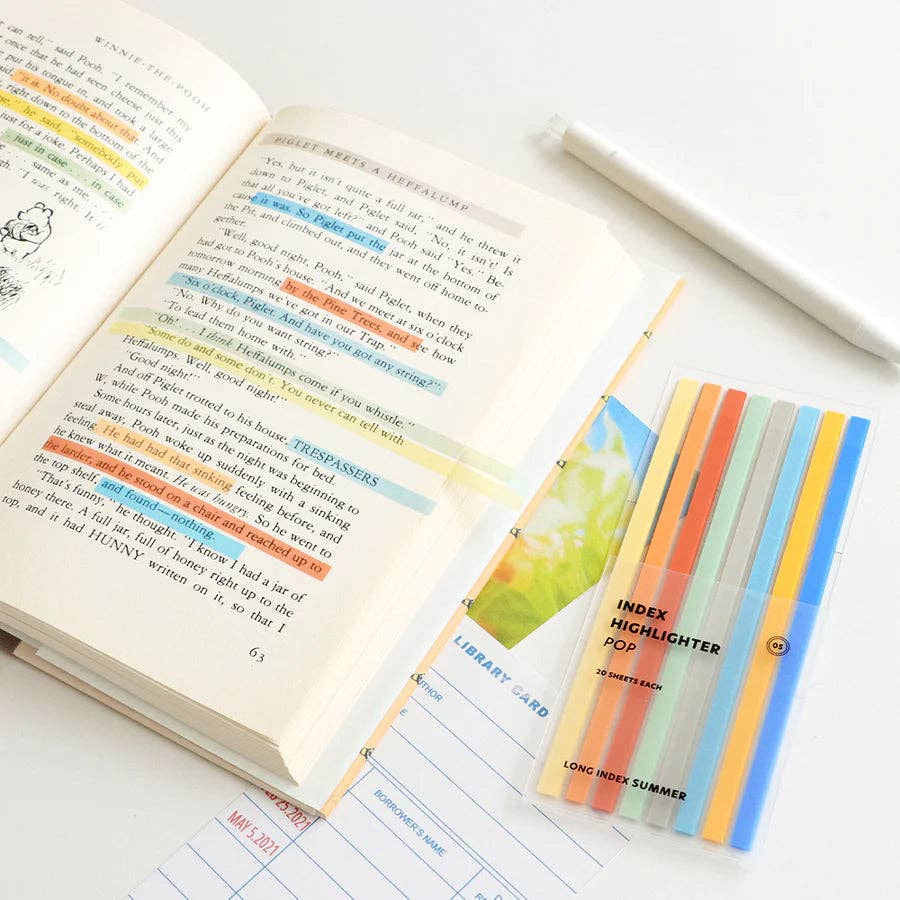 WINNIE-THE-POOH
can tell," said Pooh. "I remember my
once that he had seen cheese just this
put his tongue in, and took a large
"it is. No doubt about that.
right down to the bottom of the
he said, "somebody put
just for a joke. Perhaps I had
just in case . . . in case
same as me.
"I was right. It
PIGLET MEETS A HEFFALUMP
"Yes, but it isn't quite a full jar,"
down to Piglet, and Piglet said, "No, it isn't! Is
and he threw it
that all you've got left?" and Pooh said "Yes." Be-
cause it was. So Piglet put the jar at the bottom of
the Pit, and climbed out, and they went off home to-
gether.
"Well, good night, Pooh," said Piglet, when they
had got to Pooh's house. "And we meet at six o'clock
tomorrow morning by the Pine Trees, and see how
many Heffalumps we've got in our Trap."
"Six o'clock, Piglet. And have you got any string?"
"No. Why do you want string?"
"To lead them home with."
"Oh! . . . I think Heffalumps come if you whistle."
"Some do and some don't. You never can tell with
Heffalumps. Well, good night!"
"Good night!"
And off Piglet trotted to his house TRESPASSERS
W, while Pooh made his preparations for bed.
Some hours later, just as the night was beginning to
steal away, Pooh woke up suddenly with a sinking
feeling. He had had that sinking feeling before, and
he knew what it meant. He was hungry. So he went to
the larder, and he stood on a chair and reached up to
the top shelf, and found—nothing.
"That's funny," he thought. "I know I had a jar of
honey there. A full jar, full of honey right up to the
top, and it had HUNNY written on it, so that I
63
LIBRARY CARD
BORROWER'S NAME
MAY 5.2021
INDEX
HIGHLIGHTER
POP
05
20 SHEETS EACH
LONG INDEX SUMMER